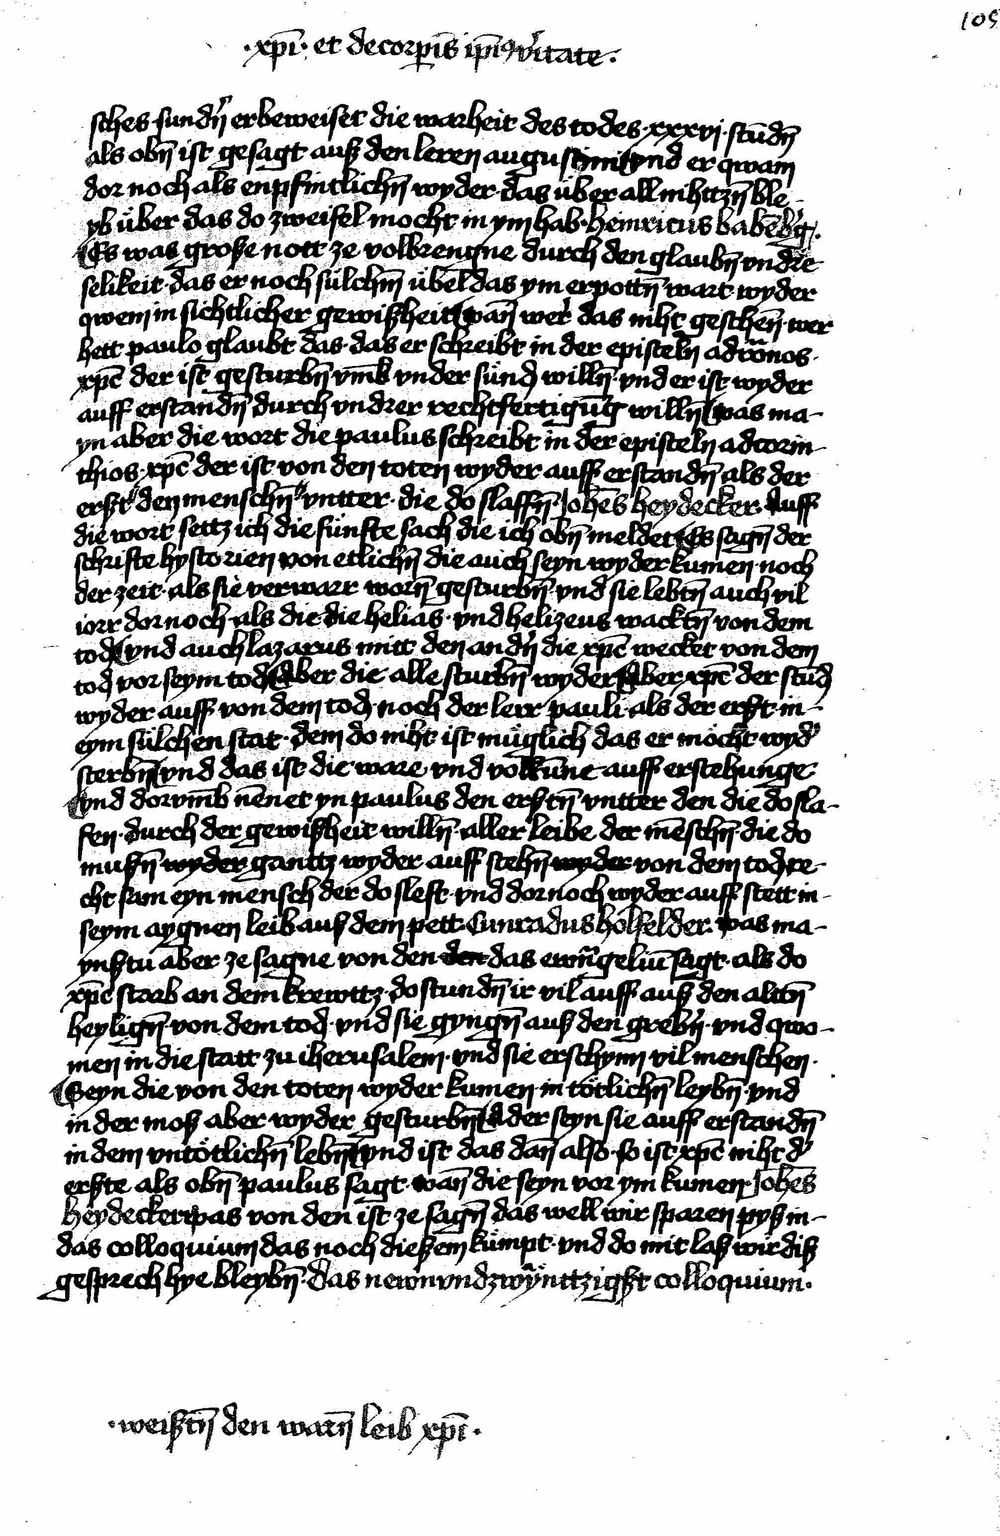 105
·xp̄i· et de corp̄is ip̄i9 v̓itate·
sches sundn̄ erbeweiset die warheit des todes·xxxvj·stūdn̄
als obn̄ ist gesagt auß den leren augustini vnd er qwam
dor noch als enpfintlichn̄ wyder das über all nihttzn̄ ble-
yb über das do zweifel mocht in ym hab·Heinricus babēb̓g·
Es was große nott ze volbrengne durch den glaubn̄ vndr̓e
selikeit·das er noch sülchm̄ übel das ym erpottn̄ wart wyder
qwem in sichtlicher gewißheit wan̄ wer̓ das niht gescheh̄n·wer
hett paulo glaubt das·das er schreibt in der episteln ad romāos·
xp̄c der ist gesturbn̄ vm̄b vnder sünd willn̄·vnd er ist wyder
auff erstandn̄ durch vndrer rechtfertigūg willn̄ was ma-
yn aber die wort die paulus schreibt in der episteln ad corin-
thios·xp̄c der ist von den toten wyder auff erstandn̄ als der
erst den menschn̄ vntter·die do slaffn̄·Joh̄es heydecker·Auff
die wort settz ich die fünfte sach die ich obn̄ meldet Es sagn̄ der
schrifte hystorien von etlichn̄ die auch seyn wyder kumen noch
der zeit·als sie verwarr worn̄ gesturbn̄·vnd sie lebtn̄ auch vil
iorr dornoch·als die die helias·vnd helizeus wacktn̄ von dem
tod vnd auch lazarus mitt den andn̓ die xp̄c wecket von dem
tod vor seym tod Aber die alle sturbn̄ wyder Aber xp̄c der stūd
wyder auff von dem tod·noch der lerr pauli·als der erst in-
eym sülchen stat·dem do niht ist müglich das er möcht wyd̓
sterbn̄ vnd das ist die ware vnd volkūne auff erstehunge
vnd dorvm̄b nēnet yn paulus den erstn̄ vntter den die do sla-
fen·durch der gewißheit willn̄·aller leibe der mēschn̄·die do
mußn̄ wyder ganttz wyder auff stehn̄ wyder von dem tod·re-
cht sam eyn mensch der do sleft·vnd dornoch wyder auff stett in-
seym aygnen leib auß dem pett·Cunradus holfelder·was ma-
ynstu aber ze sagne von den den das ewāngeliū sagt·als do
xp̄c starb an dem krewttz·do stundn̄ ir vil auff auß den altn̄
heylign̄·von dem tod·vnd sie gyngn̄ auß den grebn̓·vnd qwo-
men in die statt zu iherusalem·vnd sie erschynn vil menschen·
Seyn die von den toten wyder kumen in tötlichn̄ leybn̄·vnd
in der moß aber wyder gesturbn̄ Oder seyn sie auff erstandn̄
in dem vntötlichn̄ lebn̄ vnd ist das dan̄ also·so ist xp̄c niht d̓
erste als obn̄ paulus sagt·wan̄ die seyn vor ym kumen·Joh̄es
heydecker was von den ist ze sagn̄ das well wir sparen pyß in-
das colloquium das noch dießem kümpt·vnd do mit laß wir diß
gesprech hye bleybn̄·das newn vnd zwäynttzigst colloquium·
·weißtn̄ den warn̄ leib xp̄i·